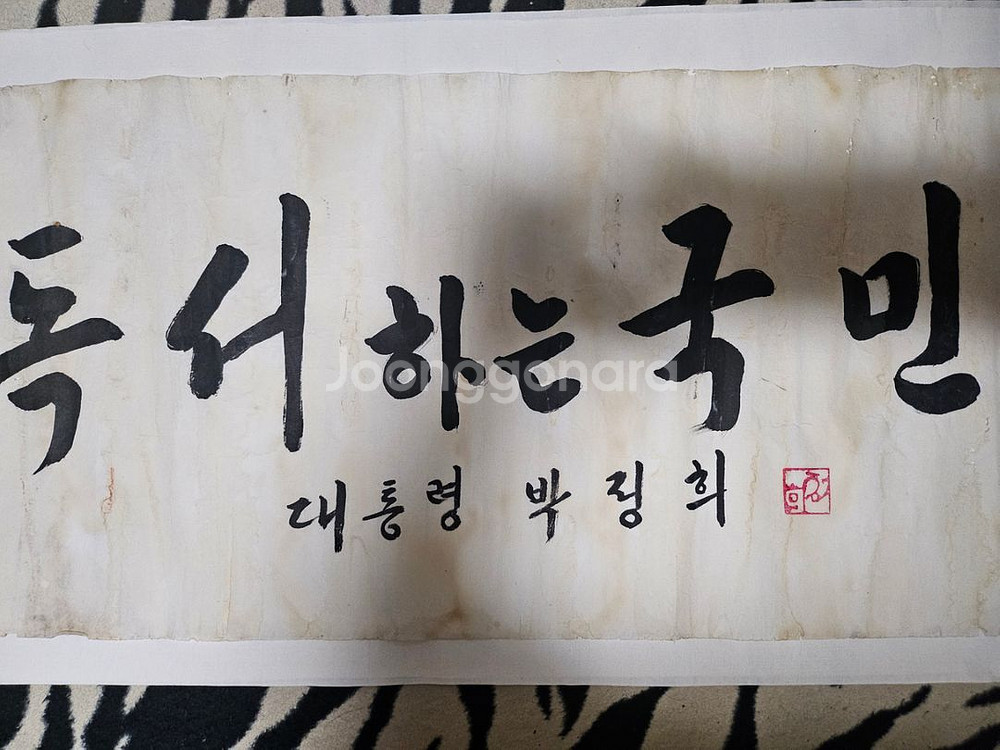 독서하는국민
대통령 박정희
Joonggonara